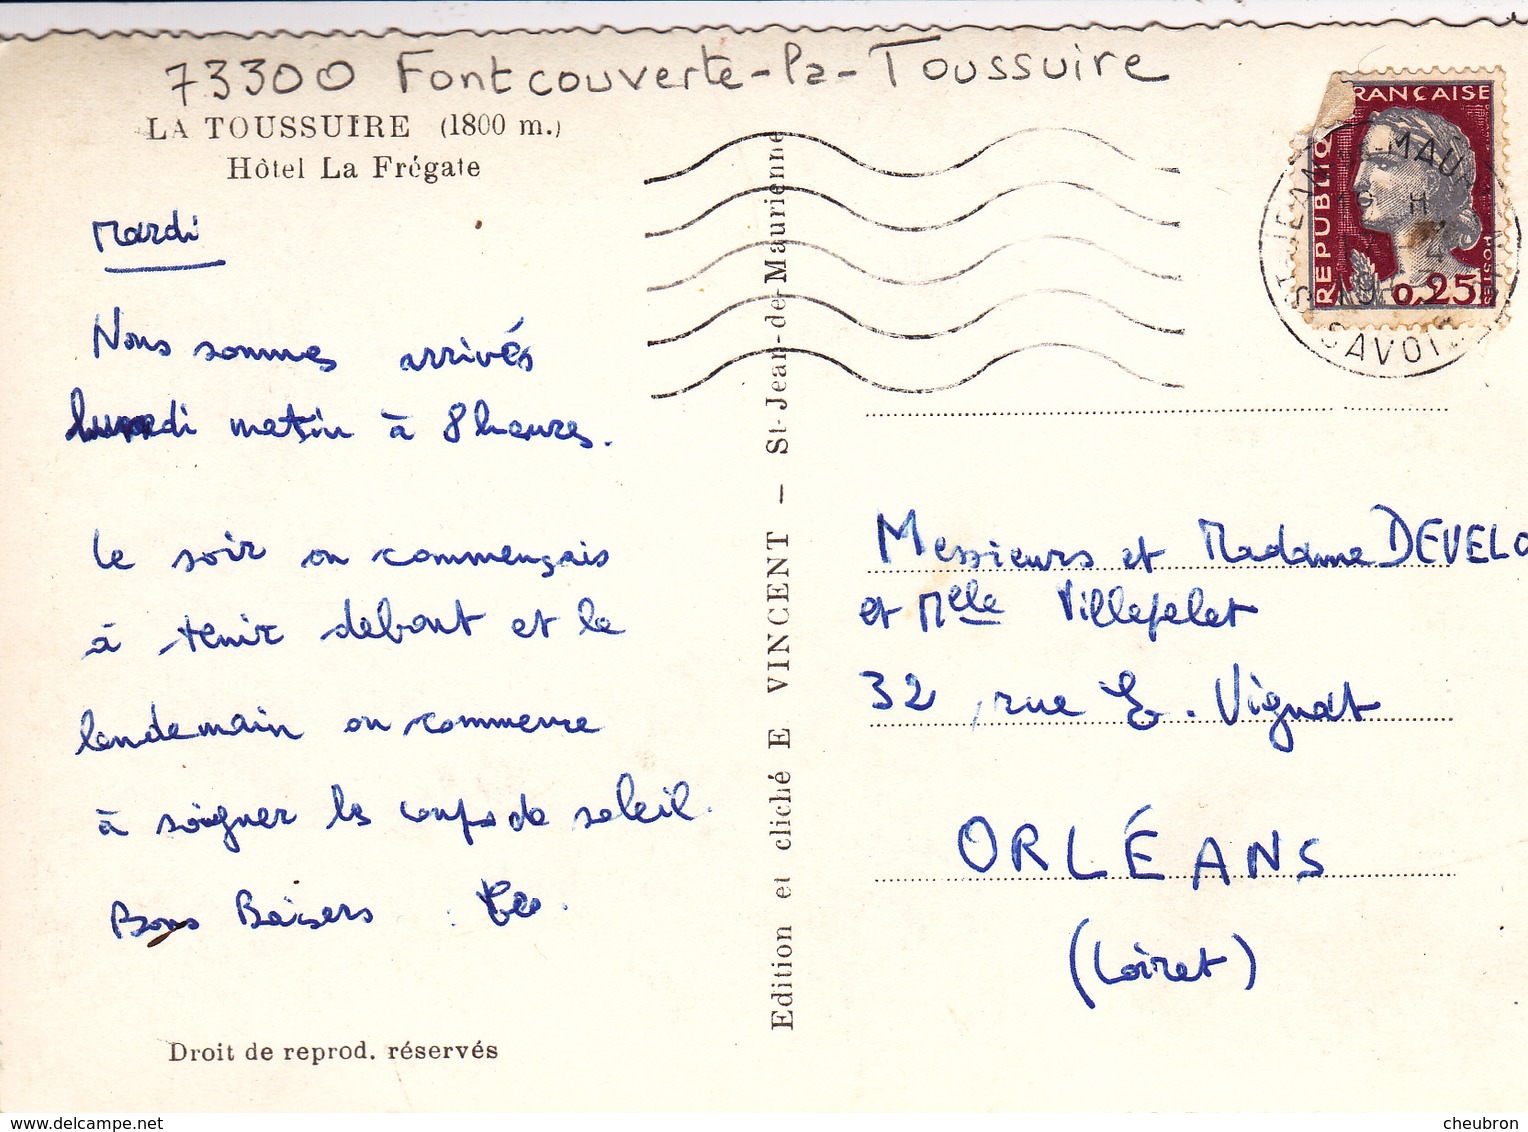 73300 Fontcouverte-la-Toussuire
LA TOUSSUIRE (1800 m.)
Hôtel La Frégate
Mardi
Nous sommes arrivés
lundi matin à 8 heures.
le soir on commençais
à tenir debout et le
lendemain on commence
à soigner les coups de soleil.
Bons Baisers
Droit de reprod. réservés
Edition et cliché E VINCENT - St-Jean-de-Maurienne
RANÇAISE
REPUBLIQ
POSTES
0,25
ST-JEAN-DE-MAU
19 H
SAVOIE
Messieurs et Madame DEVELO
et Mlle Villefelet
32, rue E. Vignat
ORLÉANS
(Loiret)
www.delcampe.net
cheubron